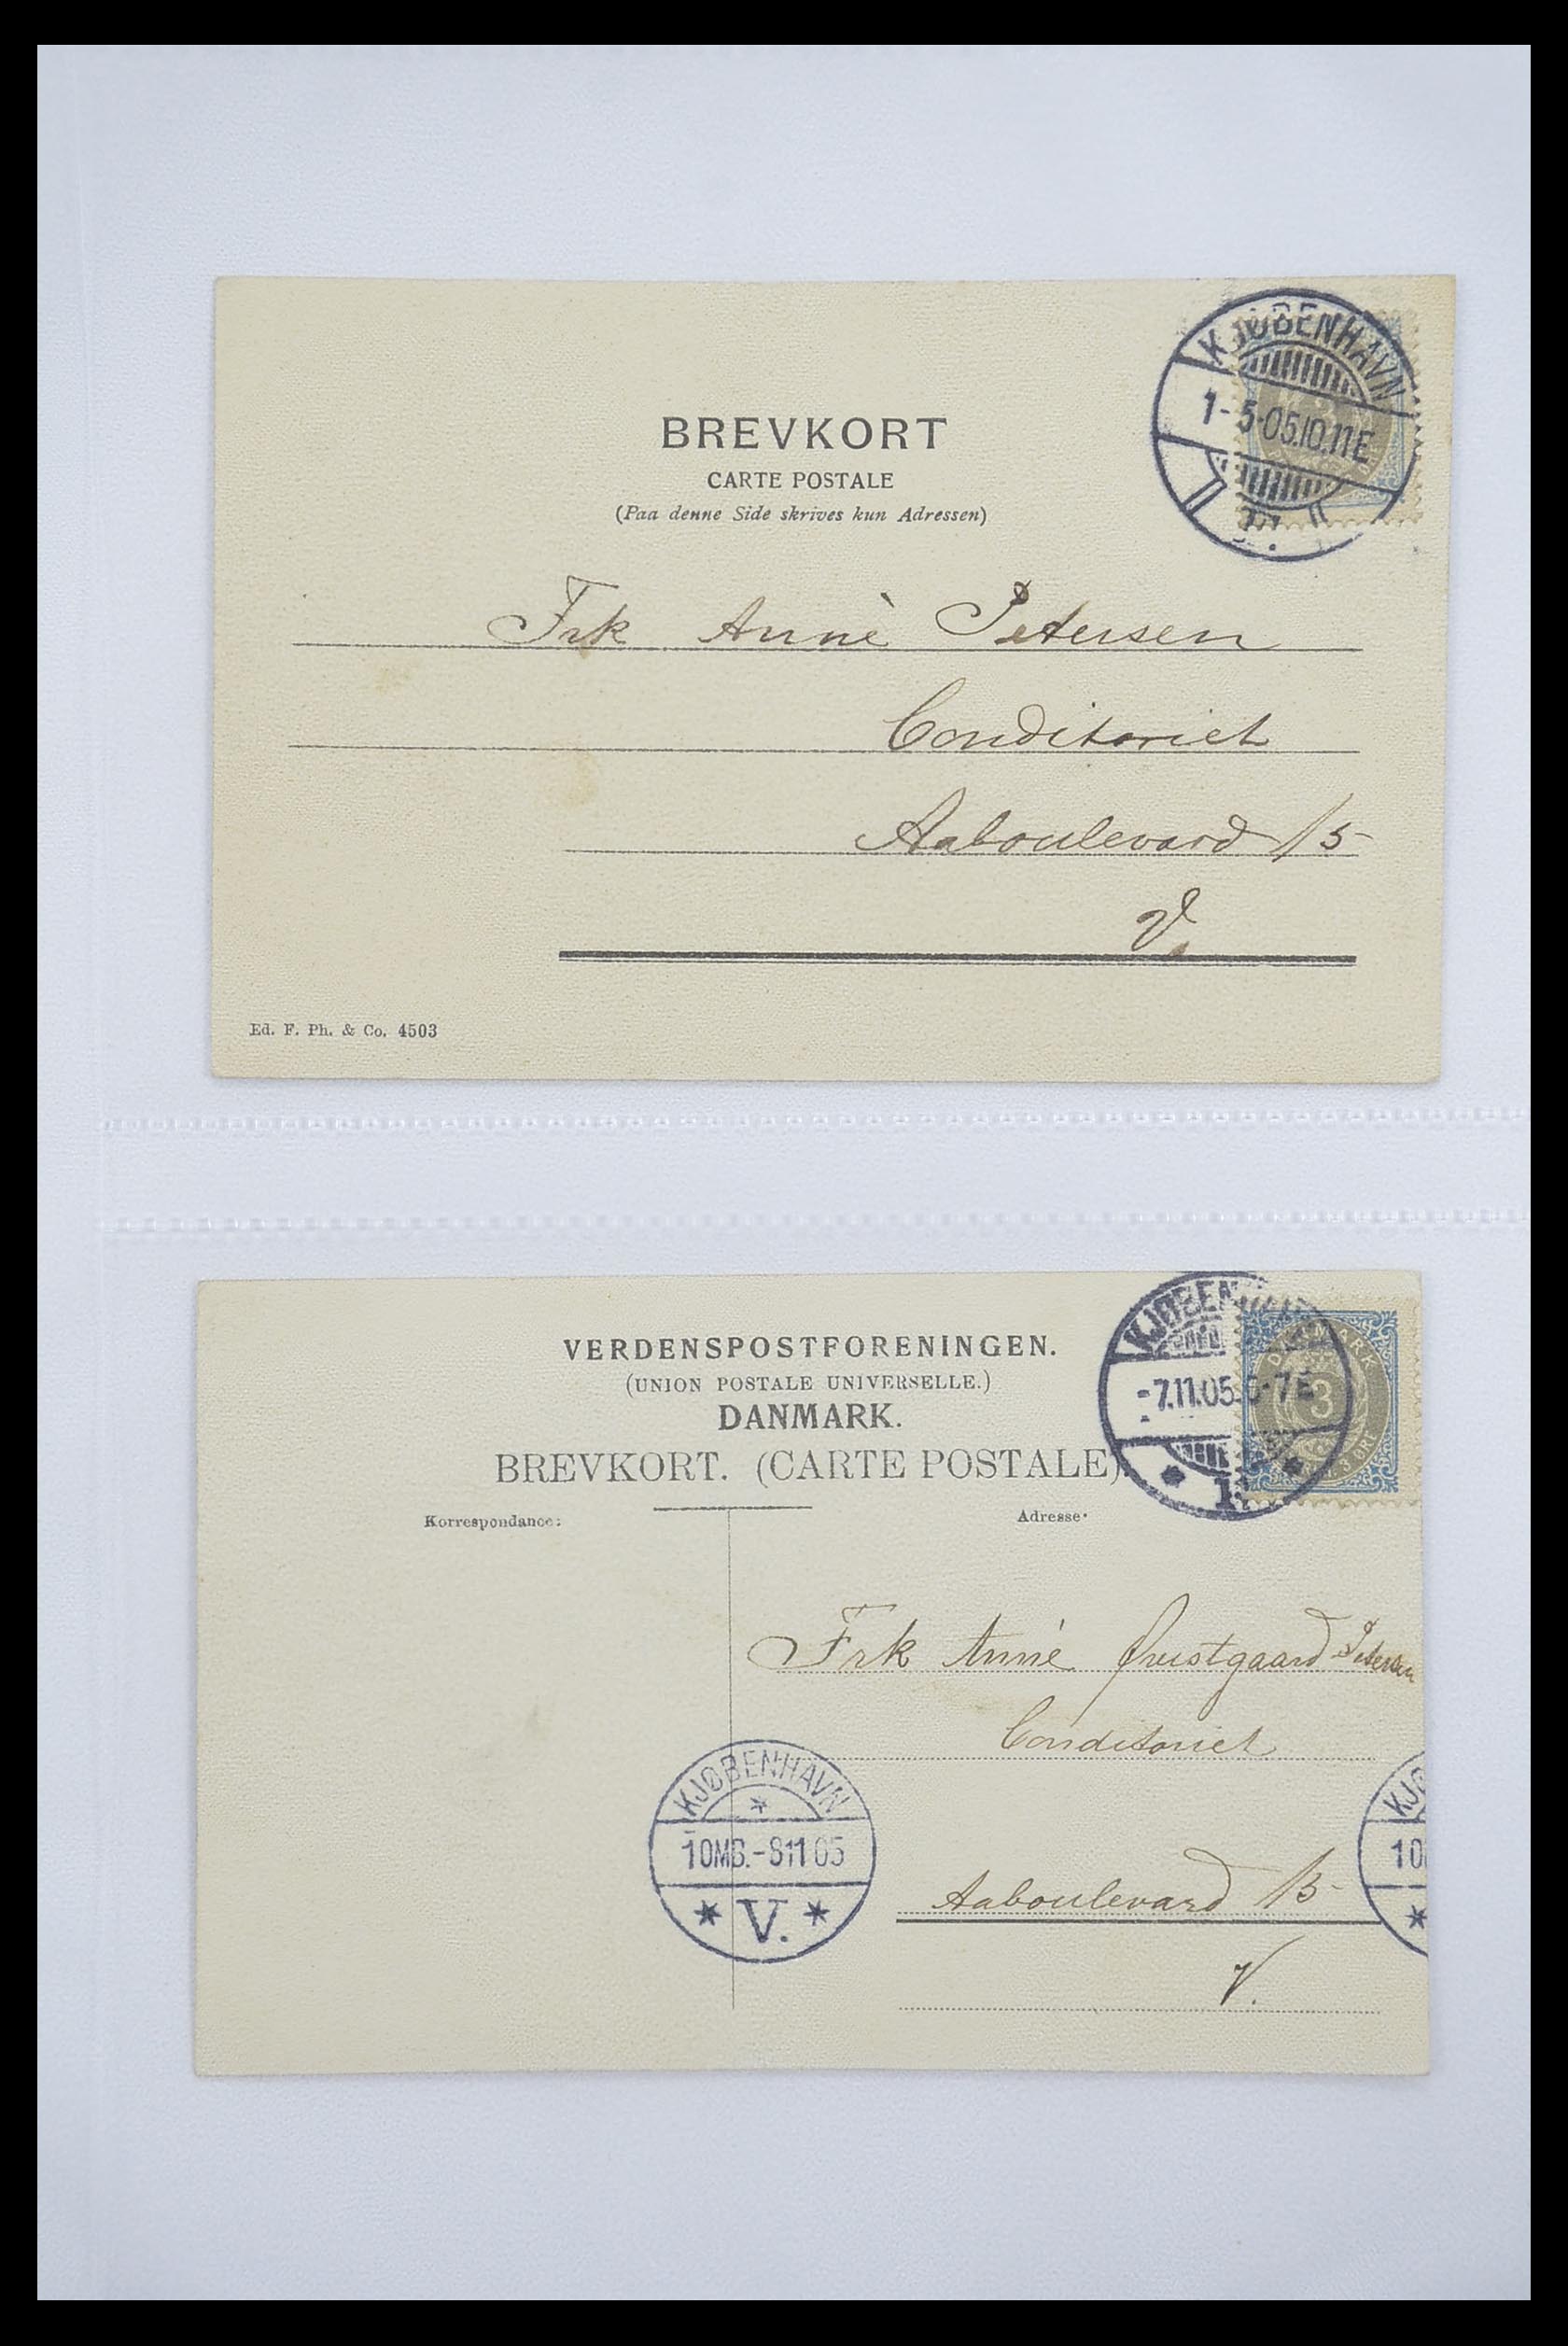 KJØBENHAVN
1-5-05.10.11E
3
BREVKORT
CARTE POSTALE
(Paa denne Side skrives kun Adressen)
Frk Anné Petersen
Conditoriet
Aaboulevard 15
V.
Ed. F. Ph. & Co. 4503
VERDENSPOSTFORENINGEN.
(UNION POSTALE UNIVERSELLE.)
DANMARK.
BREVKORT. (CARTE POSTALE).
KJØBEN
-7.11.05. -7E
1.
DANMARK
3
3 ØRE
Korrespondance:
Adresse:
Frk Anné Petersen
Conditoriet
KJØBENHAVN
10MB.-81105
V.
KJØ
10
Aaboulevard 15
V.